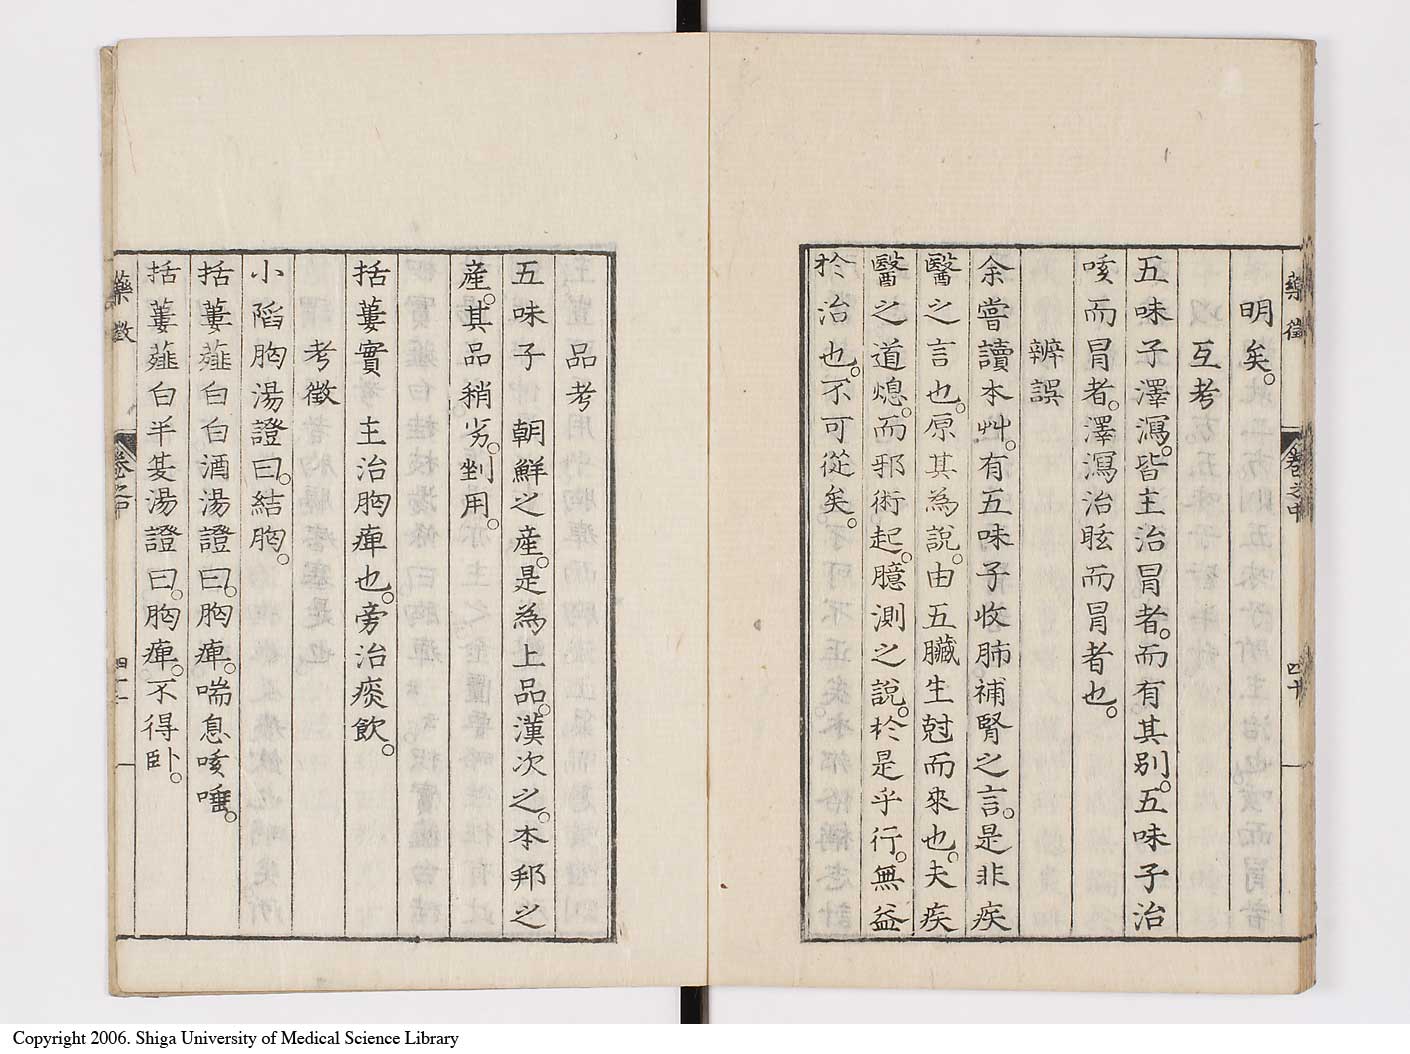 藥徵
卷之中
四十
明矣。
互考
五味子澤瀉。皆主治冒者。而有其別。五味子治
咳而冒者。澤瀉治眩而冒者也。
辨誤
余嘗讀本艸。有五味子收肺補腎之言。是非疾
醫之言也。原其為說。由五臟生尅而來也。夫疾
醫之道熄。而邪術起。臆測之說。於是乎行。無益
於治也。不可從矣。
品考
五味子 朝鮮之產。是為上品。漢次之。本邦之
產。其品稍劣。剉用。
括蔞實 主治胸痺也。旁治痰飲。
考徵
小陷胸湯證曰。結胸。
括蔞薤白白酒湯證曰。胸痺。喘息咳唾。
括蔞薤白半夏湯證曰。胸痺。不得臥。
藥徵
卷之中
四十一
Copyright 2006. Shiga University of Medical Science Library